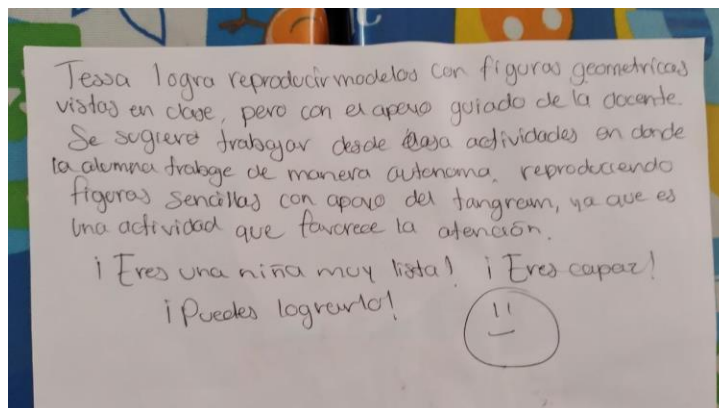 Tessa logra reproducir modelos con figuras geometricas
vistas en clase, pero con el apoyo guiado de la docente.
Se sugiere trabajar desde casa actividades en donde
la alumna trabaje de manera autonoma, reproduciendo
figuras sencillas con apoyo del tangram, ya que es
una actividad que favorece la atención.
¡Eres una niña muy lista! ¡Eres capaz!
¡Puedes lograrlo!